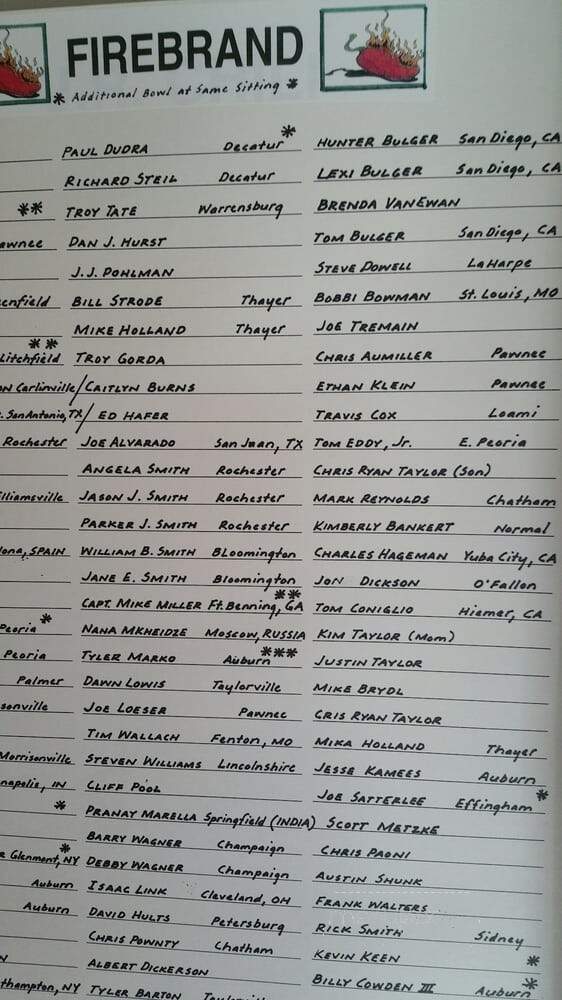 FIREBRAND
* Additional Bowl at Same Sitting *
PAUL DUDRA Decatur *
RICHARD STEIL Decatur
** TROY TATE Warrensburg
awnee DAN J. HURST
J.J. POHLMAN
enfield BILL STRODE Thayer
MIKE HOLLAND Thayer
Litchfield ** TROY GORDA
ON Carlinville/CAITLYN BURNS
. San Antonio, TX/ ED HAFER
Rochester JOE ALVARADO San Juan, TX
ANGELA SMITH Rochester
lliamsville JASON J. SMITH Rochester
PARKER J. SMITH Rochester
lona, SPAIN WILLIAM B. SMITH BLoomington
JANE E. SMITH Bloomington
CAPT. MIKE MILLER Ft. Benning, GA **
Peoria * NANA MKHEIDZE Moscow, RUSSIA
Peoria TYLER MARKO Auburn ***
Palmer DAWN LOWIS Taylorville
sonville JOE LOESER Pawnee
TIM WALLACH Fenton, MO
Morrisonville STEVEN WILLIAMS Lincolnshire
napolis, IN CLIFF POOL
* PRANAY MARELLA Springfield (INDIA)
BARRY WAGNER Champaign
R Glenmont, NY * DEBBY WAGNER Champaign
Auburn ISAAC LINK Cleveland, OH
Auburn DAVID HULTS Petersburg
CHRIS POWNTY Chatham
N ALBERT DICKERSON
thampton, NY TYLER BARTON
HUNTER BULGER San Diego, CA
LEXI BULGER San Diego, CA
BRENDA VANEWAN
TOM BULGER San Diego, CA
STEVE DOWELL LaHarpe
BOBBI BOWMAN St. Louis, MO
JOE TREMAIN
CHRIS AUMILLER Pawnee
ETHAN KLEIN Pawnee
TRAVIS COX Loami
TOM EDDY, Jr. E. Peoria
CHRIS RYAN TAYLOR (Son)
MARK REYNOLDS Chatham
KIMBERLY BANKERT Normal
CHARLES HAGEMAN Yuba City, CA
JON DICKSON O'Fallon
TOM CONIGLIO Hiemer, CA
KIM TAYLOR (Mom)
JUSTIN TAYLOR
MIKE BRYDL
CRIS RYAN TAYLOR
MIKA HOLLAND Thayer
JESSE KAMEES Auburn
JOE SATTERLEE Effingham *
SCOTT METZKE
CHRIS PAONI
AUSTIN SHUNK
FRANK WALTERS
RICK SMITH Sidney
KEVIN KEEN *
BILLY COWDEN III Auburn *